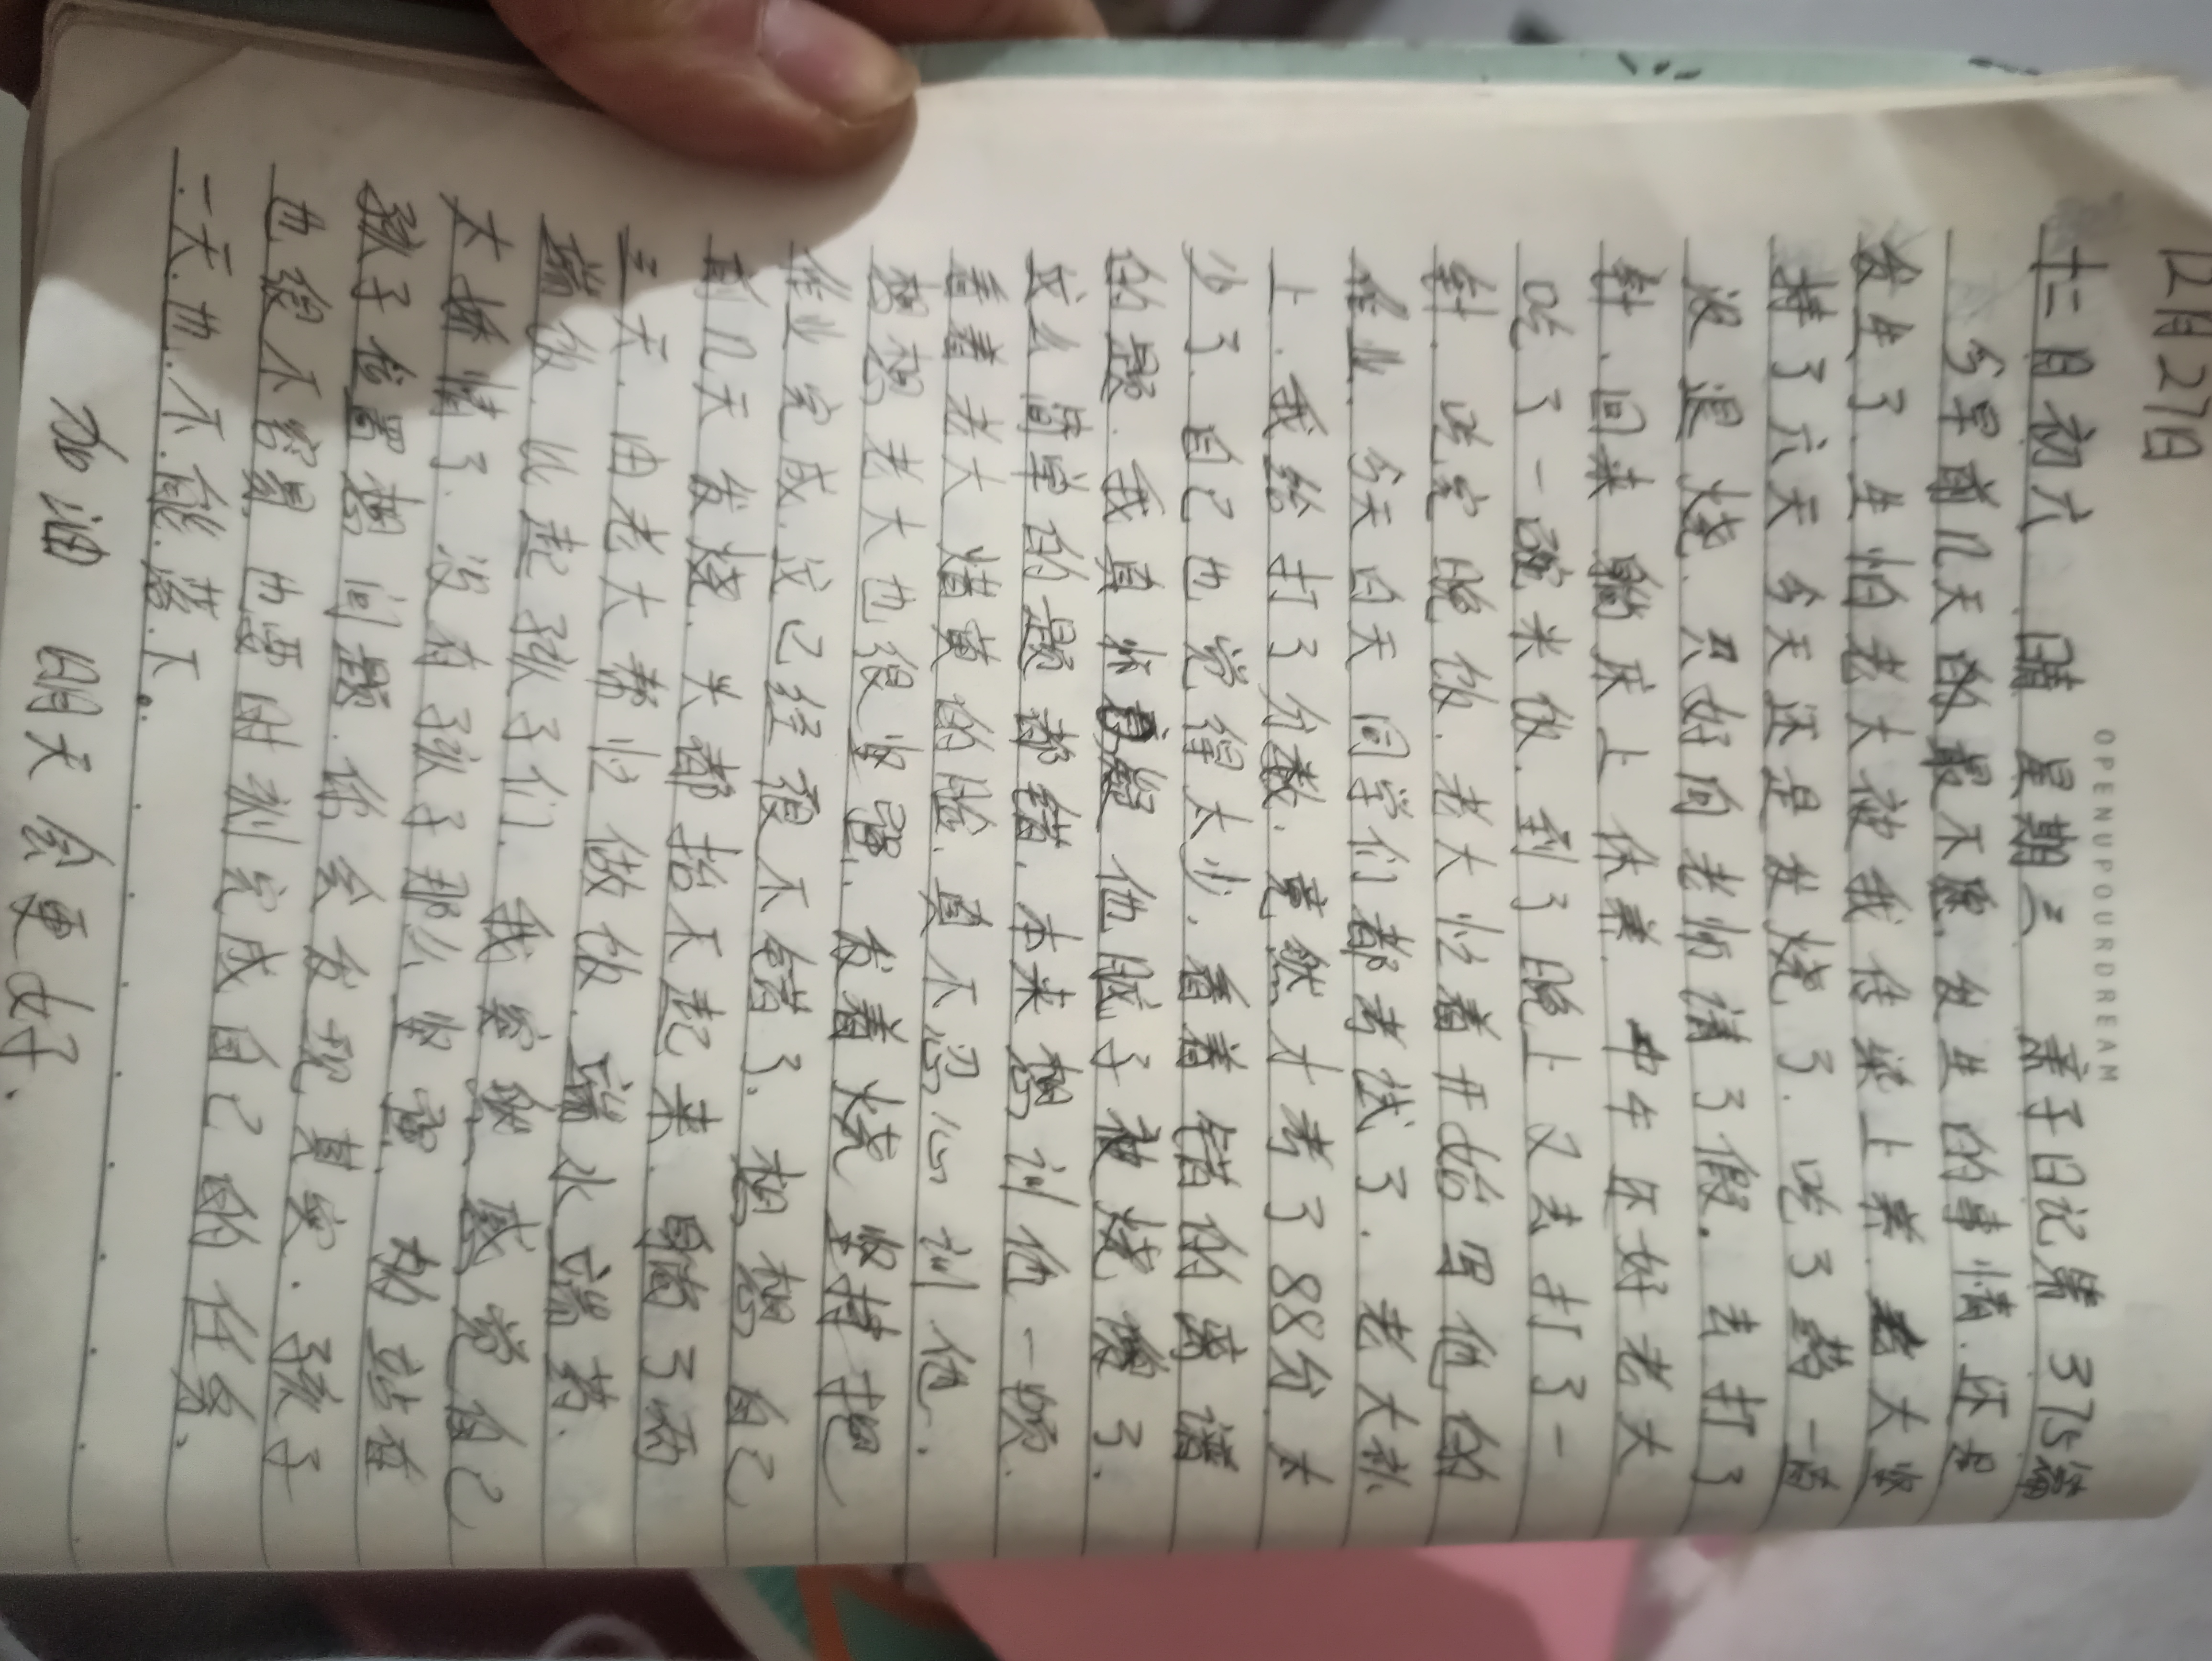 12月27日
OPENUPOURDREAM
十二月初六 晴 星期三 亲子日记第375篇
今早前几天的最不愿发生的事情.还是
发生了.生怕老大被我传染上来.老大坚
持了六天今天还是发烧了.吃了药一直
没退烧.只好向老师请了假.去打了
针.回来躺床上休养.中午还好老大
吃了一碗米饭.到了晚上又去打了一
针.吃完晚饭.老大忙着开始写他的
作业.今天白天同学们都考试了.老大补
上.我给打了分数.竟然才考了88分.太
少了.自己也觉得太少.看着错的离谱
的题.我真怀疑他脑子被烧傻了.
这么简单的题都错.本来想训他一顿.
看着老大憔黄的脸.真不忍心训他.
想想老大也很坚强.发着烧坚持把
作业完成这已经很不错了.想想自己
前几天发烧.头都抬不起来.躺了两
三天.由老大帮忙做饭.端水端药.
端饭.比起孩子们.我突然感觉自己
太矫情了.没有孩子那么坚强.妈站在
孩子位置想问题.你会发现其实.孩子
也很不容易.也要时刻完成自己的任务.
一天也不能落下.
加油 明天会更好.